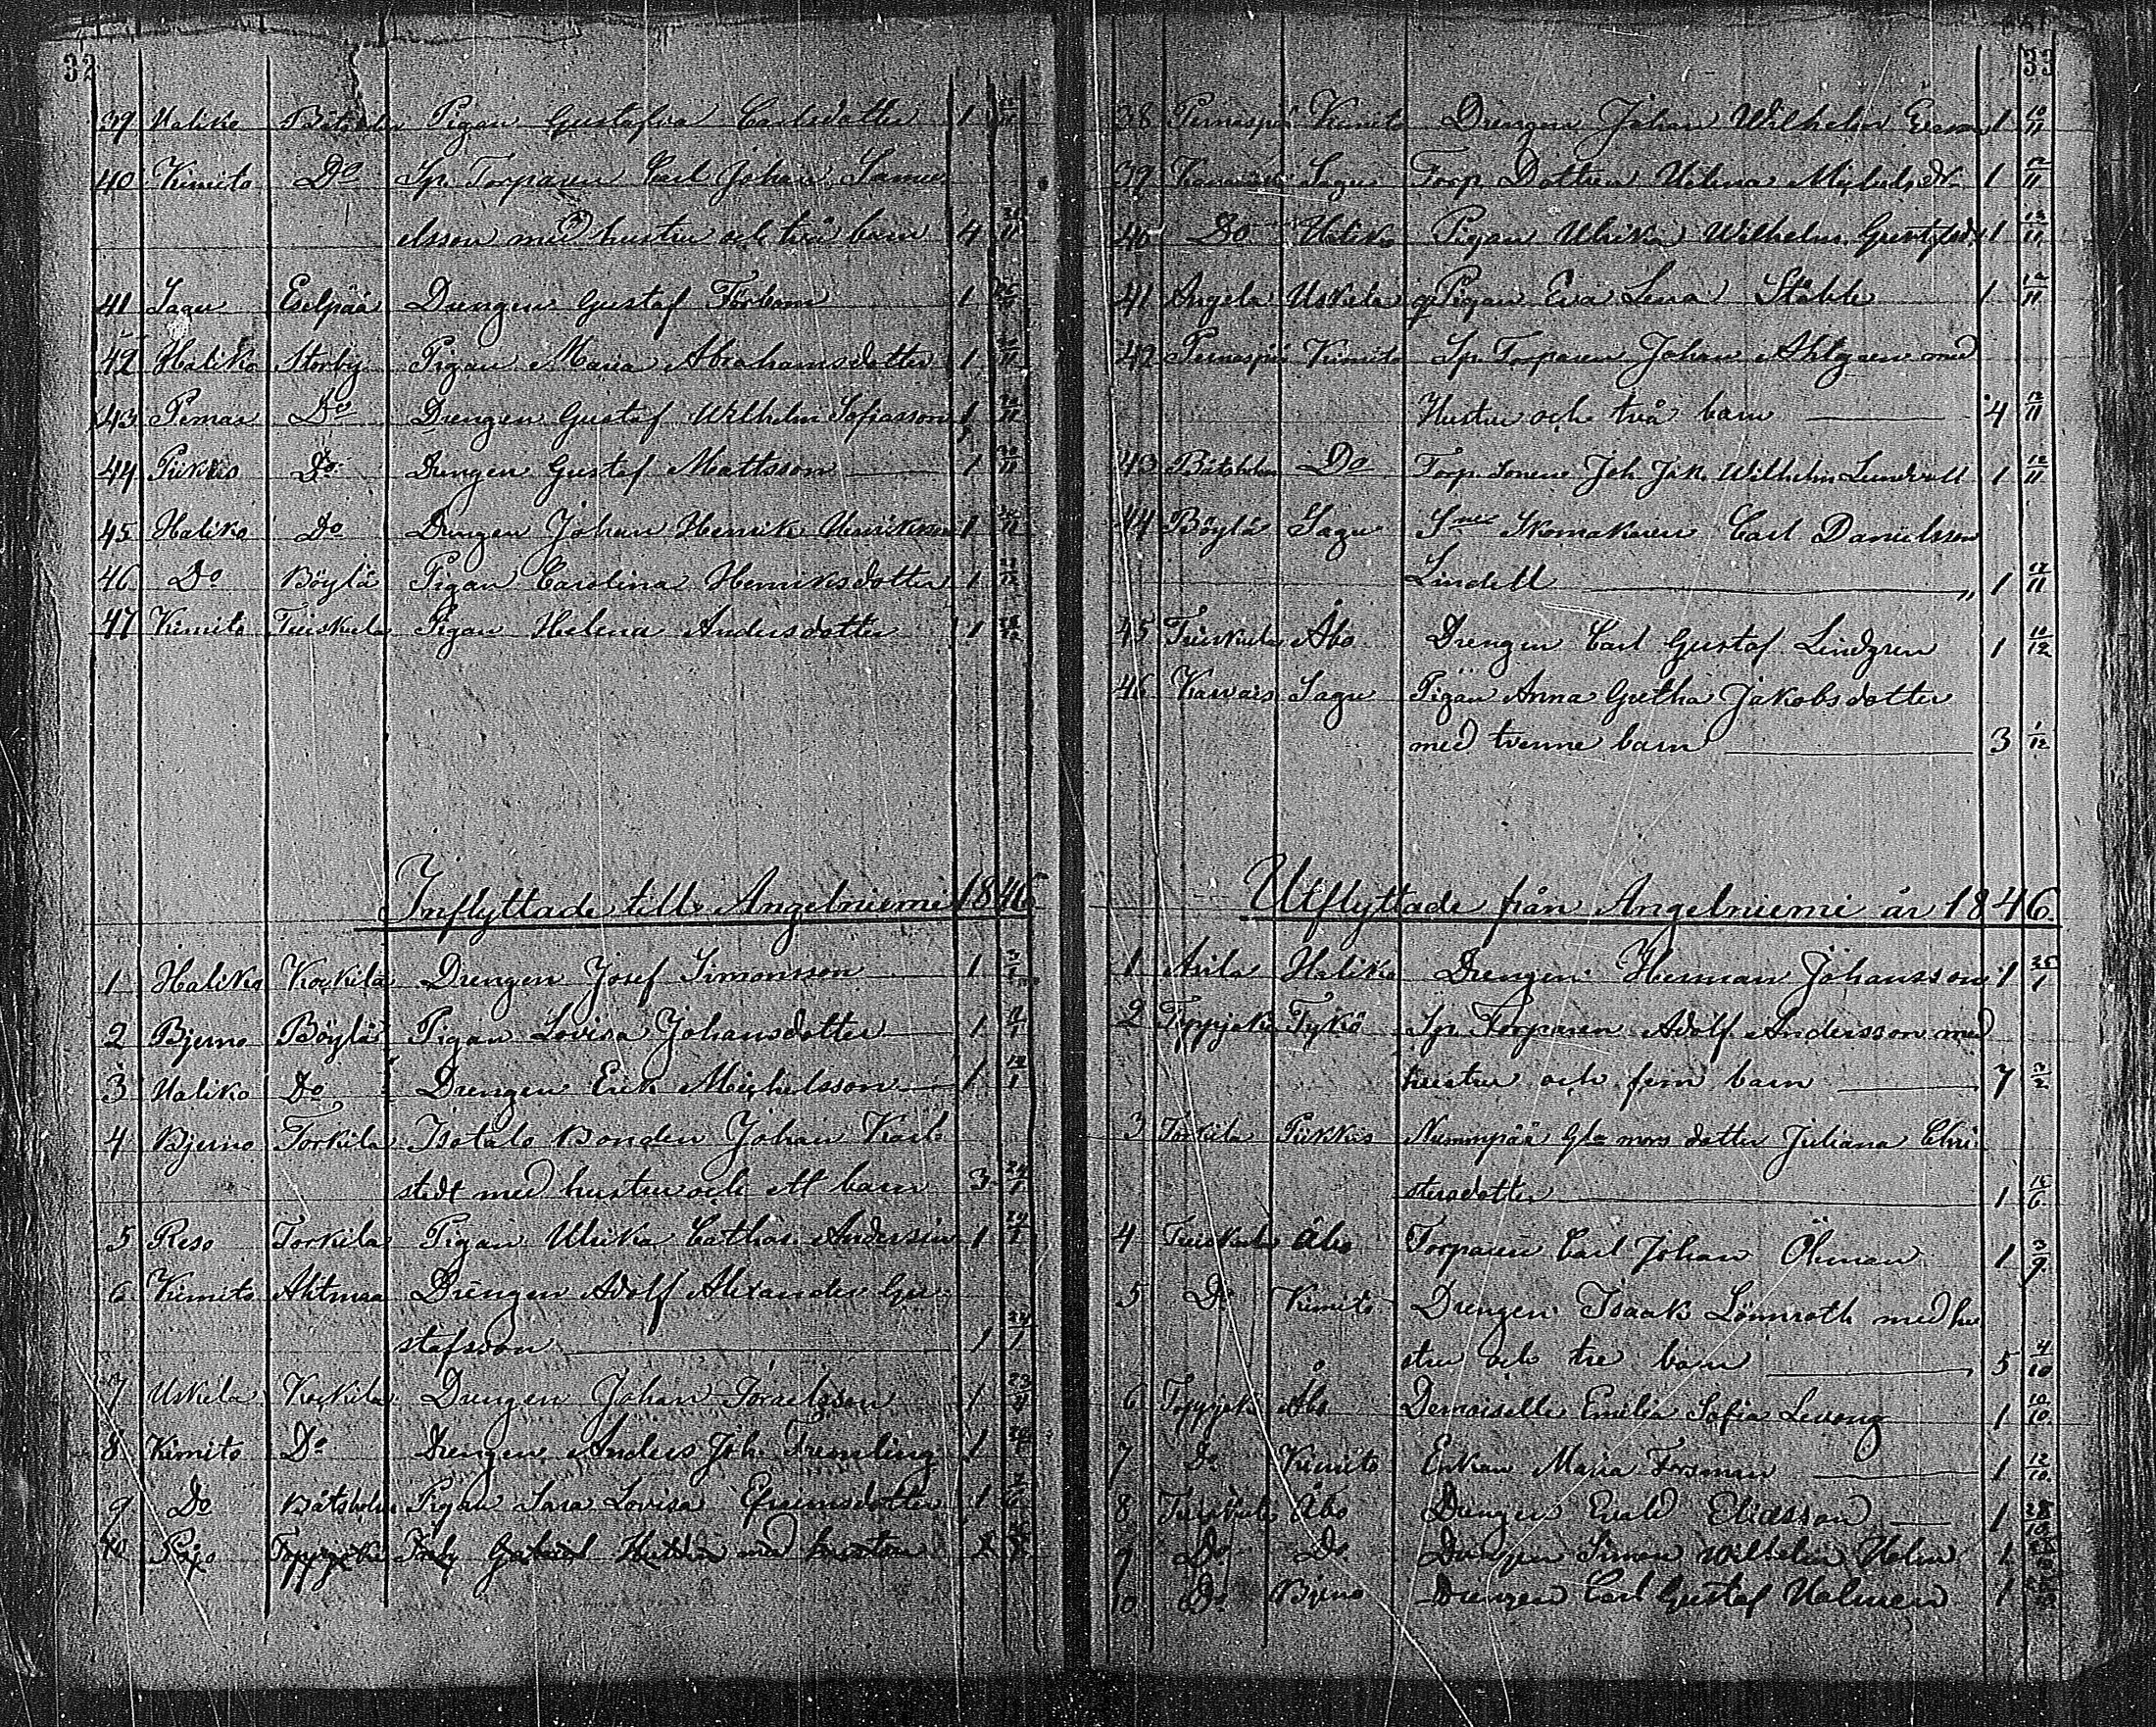 32
39 Haliko Båtsholm Pigan Gustafva Carlsdotter 1
40 Kimito Do Sp. Torparen Carl Johan Samu
elsson med hustru och två barn 4
41 Sagu Eselpää Drengen Gustaf Förbom 1
42 Haliko Storby Pigan Maria Abrahamsdotter 1
43 Pemar Do Drengen Gustaf Wilhelm Sofiasson 1
44 Pikkis Do Drengen Gustaf Mattsson 1
45 Haliko Do Drengen Johan Henrik Henriksson 1
46 Do Böylä Pigan Carolina Henriksdotter 1
47 Kimito Tuiskula Pigan Helena Andersdotter 1
Inflyttade till Angelniemi 1846
1 Haliko Kokkila Drengen Josef Simonsson 1
2 Bjerno Böylä Pigan Lovisa Johansdotter 1
3 Haliko Do Drengen Erik Michelsson 1 12/1
4 Bjerno Torkila Isotalo Bonden Johan Karl
stedt med hustru och ett barn 3 24/1
5 Reso Torkila Pigan Ulrika Cathar. Andersin 1 24/1
6 Kimito Ahtmaa Drengen Adolf Alexander Gu
stafsson 1 24/1
7 Uskela Kokkila Drengen Johan Israelsson 1
8 Kimito Do Drengen Anders Joh. Tremling 1
9 Do Båtsholm Pigan Sara Lovisa Efraimsdotter 1
10 Toppjoki Gabriel med hustru 2
33
38 Pernaspää Kimito Drengen Johan Wilhelm 1 10/11
39 Sagu Torp. Dottren Helena Michelsdr 1 12/11
40 Do Haliko Pigan Ulrika Wilhelm. Gustfsdr 1 12/11
41 Angela Uskela Pigan Eva Lena Ståhle 1 12/11
42 Pernaspää Kimito Sp. Torparen Johan Ahlgren med
Hustru och två barn 4 12/11
43 Båtsholm Do Torp. Sonen Joh. Jak. Wilhelm Lundvall 1 12/11
44 Böylä Sagu Sne Skomakaren Carl Danielsson
Lindell 1 12/11
45 Tuiskula Åbo Drengen Carl Gustaf Lindgren 1 12/12
46 Karvais Sagu Pigan Anna Gretha Jakobsdotter
med tvenne barn 3 1/12
Utflyttade från Angelniemi år 1846
1 Asila Haliko Drengen Herman Johansson 1 25/1
2 Toppjoki Tykö Sp. Torparen Adolf Andersson med
hustru och fem barn 7 2/2
3 Torkila Pikkis Nummpää Gla mors dotter Juliana Chri
stersdotter 1 12/6
4 Tuiskula Åbo Torparen Carl Johan Öhman 1 3/9
5 Do Kimito Drengen Isaak Lönnroth med hu
stru och tre barn 5 4/10
6 Toppjoki Åbo Demoiselle Emilia Sofia Levong 1 10/10
7 Do Kimito Enkan Maria Forsman 1 12/10
8 Tuiskula Åbo Drengen Evald Eliasson 1 28/10
9 Do Do Drengen Simon Wilhelm Holm 1
10 Do Bjerno Drengen Carl Gustaf Holmen 1